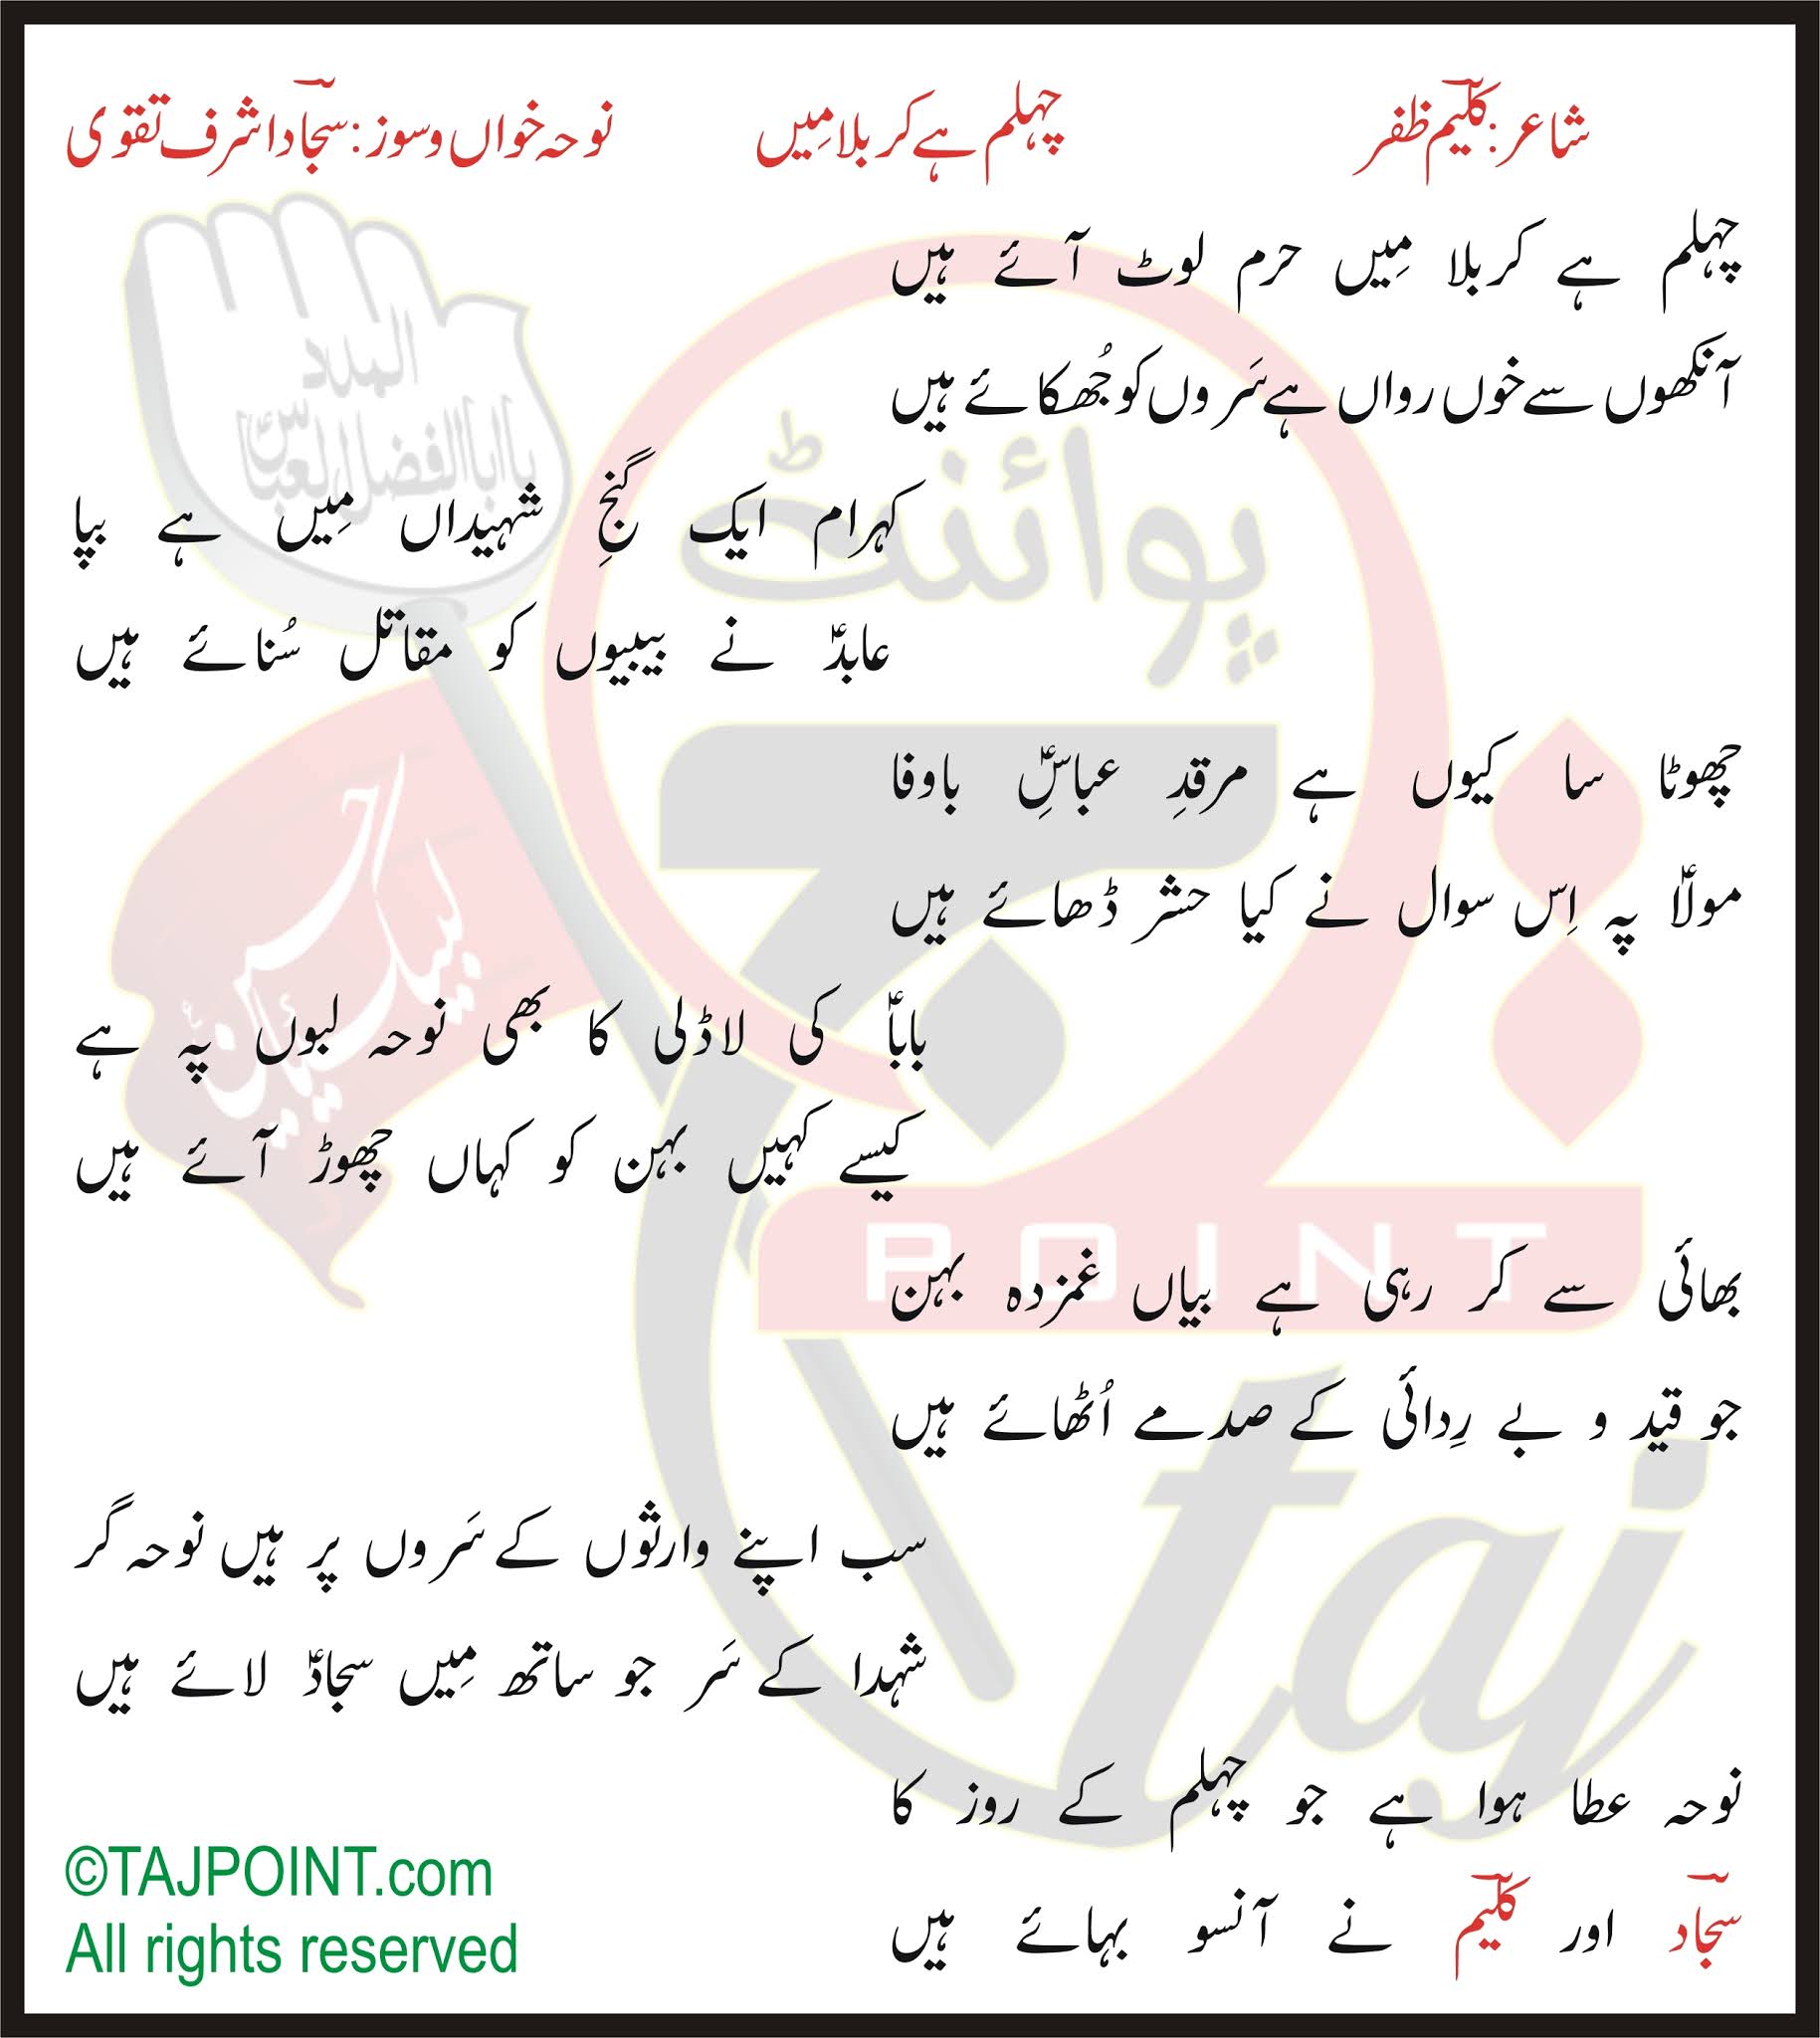 شاعر: کلیمؔ ظفر چہلم ہے کربلا مِیں نوحہ خواں و سوز: سجادؔ اشرف تقوی
چہلم ہے کربلا مِیں حرم لوٹ آئے ہیں
آنکھوں سے خوں رواں ہے سَروں کو جُھکائے ہیں
کہرام ایک گنجِ شہیداں مِیں ہے بپا
عابدؑ نے بیبیوں کو مقاتل سُنائے ہیں
چھوٹا سا کیوں ہے مرقدِ عباسِؑ باوفا
مولاؑ پہ اِس سوال نے کیا حشر ڈھائے ہیں
باباؑ کی لاڈلی کا بھی نوحہ لبوں پہ ہے
کیسے کہیں بہن کو کہاں چھوڑ آئے ہیں
بھائی سے کر رہی ہے بیاں غمزدہ بہن
جو قید و بے رِدائی کے صدمے اُٹھائے ہیں
سب اپنے وارثوں کے سَروں پر ہیں نوحہ گر
شہدا کے سَر جو ساتھ مِیں سجادؑ لائے ہیں
نوحہ عطا ہوا ہے جو چہلم کے روز کا
سجادؔ اور کلیمؔ نے آنسو بہائے ہیں
©TAJPOINT.com
All rights reserved
پوائنٹ
تاج
POINT
taj
المدد
یا ابا الفضل العباسؑ
لبیک یا حسینؑ